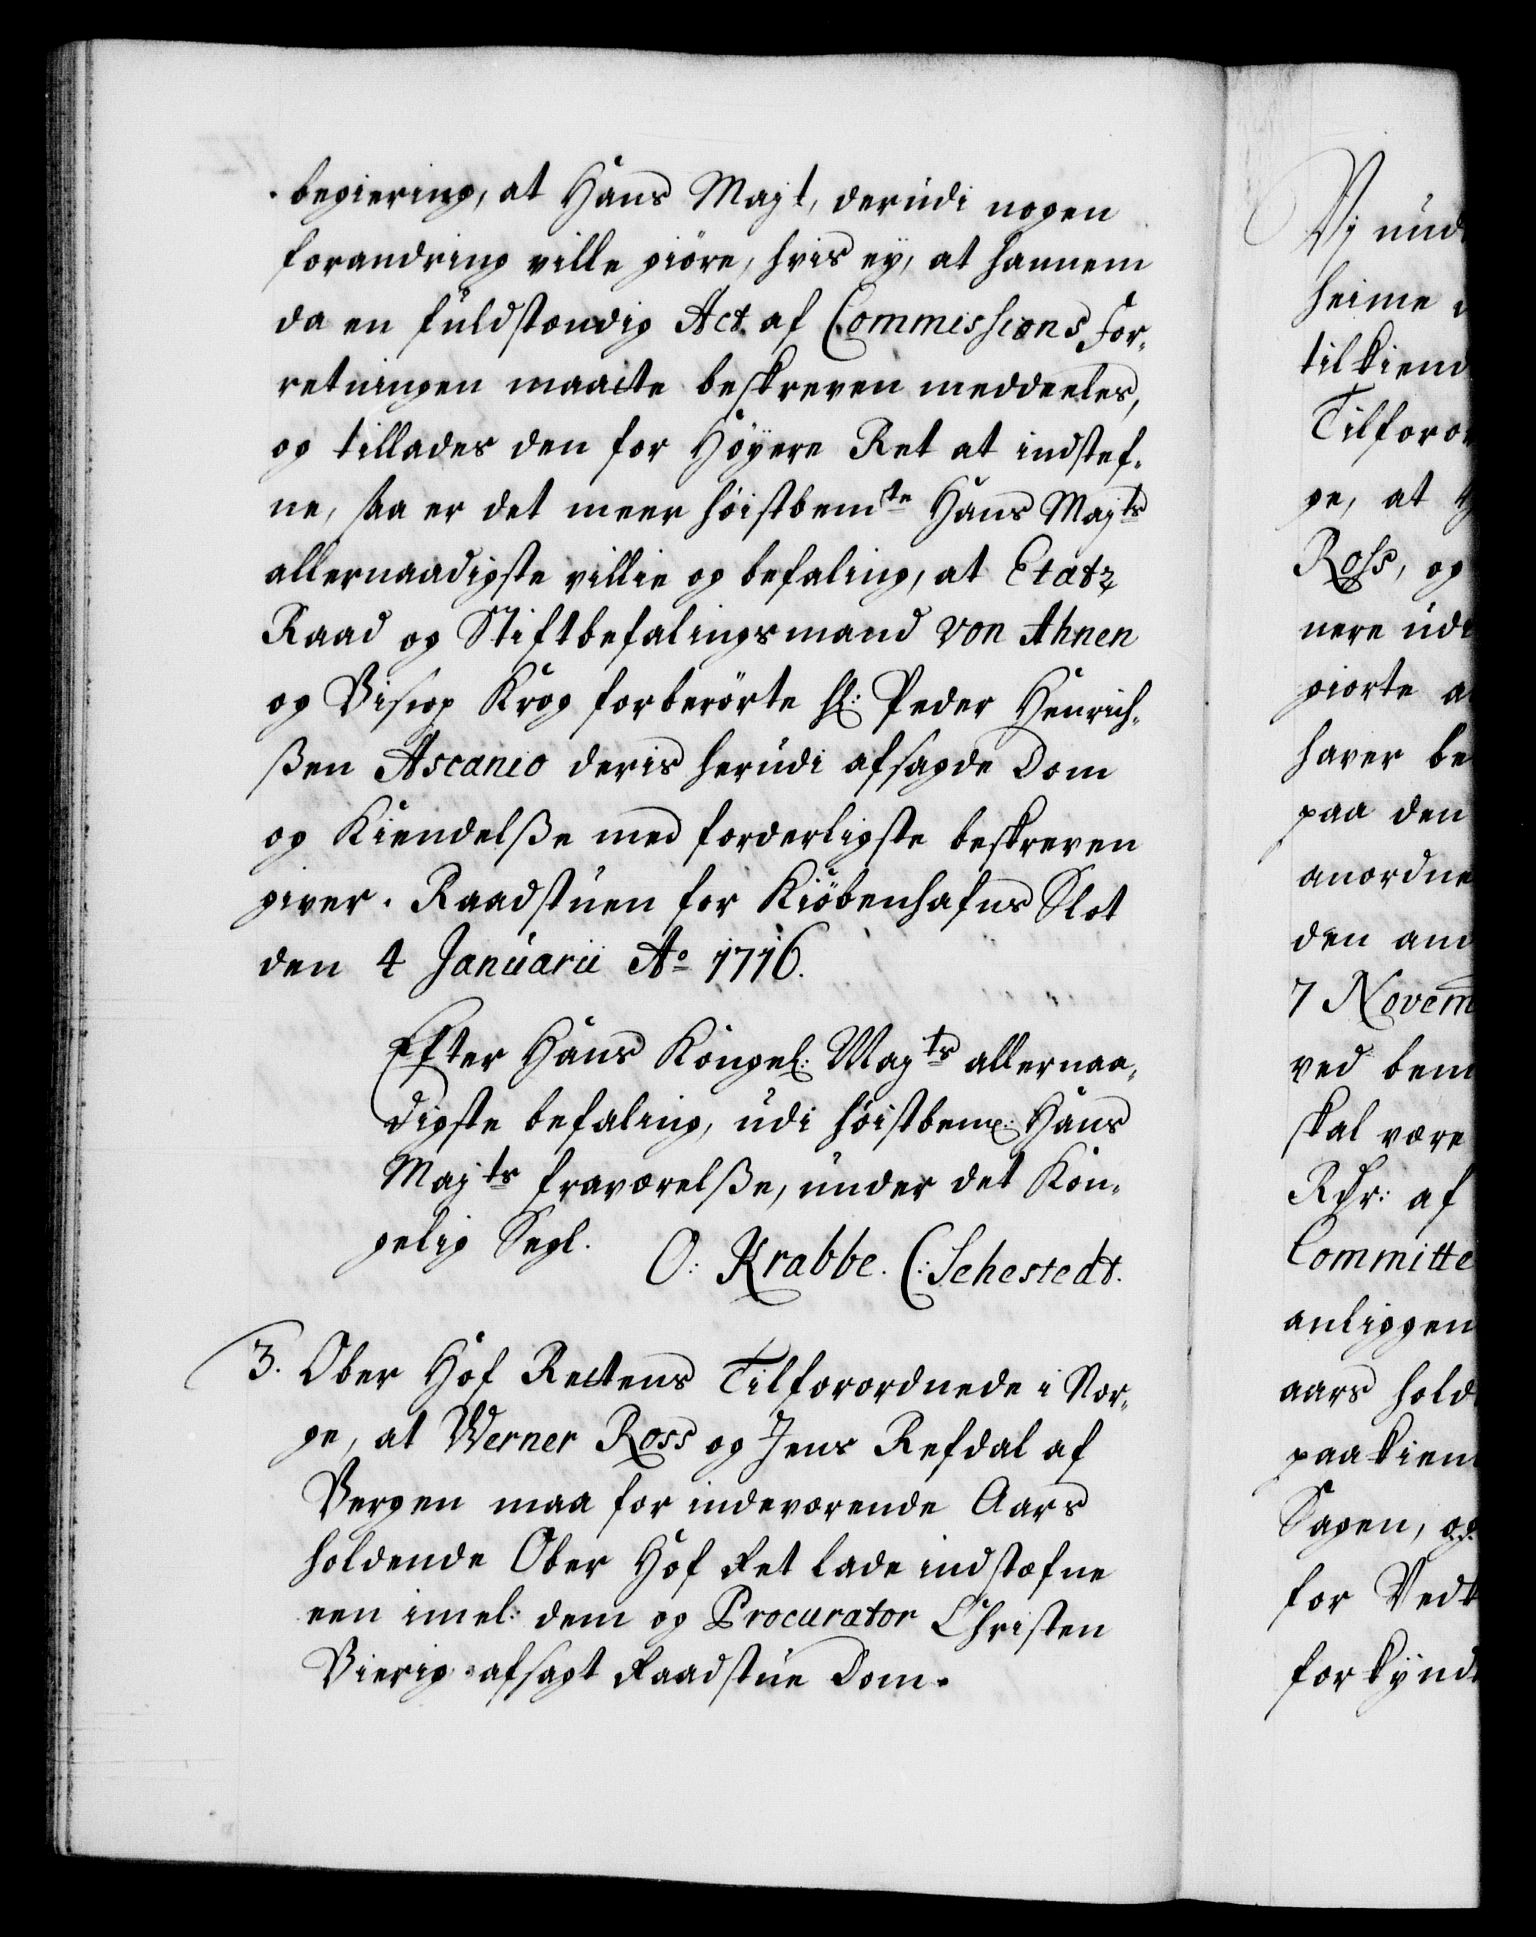 begiering, at Hans Majt, derudi nogen
forandring ville giöre, hvis ey, at hannem
da en fuldstændig Act af Commissions For-
retningen maatte beskreven meddeeles,
og tillades den for Höyere Ret at indstef-
ne, saa er det meer höistbemte Hans Majts
allernaadigste villie og befaling, at Etatz
Raad og Stiftbefalingsmand von Ahnen
og Biscop Krog forberörte Hr: Peder Henrich-
ßen Ascanio deris herudi afsagde Dom
og Kiendelße med forderligste beskreven
giver. Raadstuen for Kiöbenhafns Slot
den 4 Januarii Ao 1716.
Efter Hans Kongel: Majts allernaa-
digste befaling, udi höistbem: Hans
Majts fraværelße, under det Kon-
gelig Segl.
O: Krabbe. C: Sehestedt.
3. Ober Hof Rettens Tilforordnede i Nor-
ge, at Werner Ross og Jens Refdal af
Bergen maa for indeværende Aars
holdende Ober Hof Ret lade indstæfne
een imel: dem og Procurator Christen
Bierig afsagt Raadstue Dom.
Vj und
heime
tilkiend
Tilforor
ge, at
Ross, og
nere ud
giorte a
haver be
paa den
anordne
den and
7 Novem
ved bem
skal være
Rdr: af
Committe
anliggen
aars hold
paakien
Sagen, og
for Vedk
forkynd